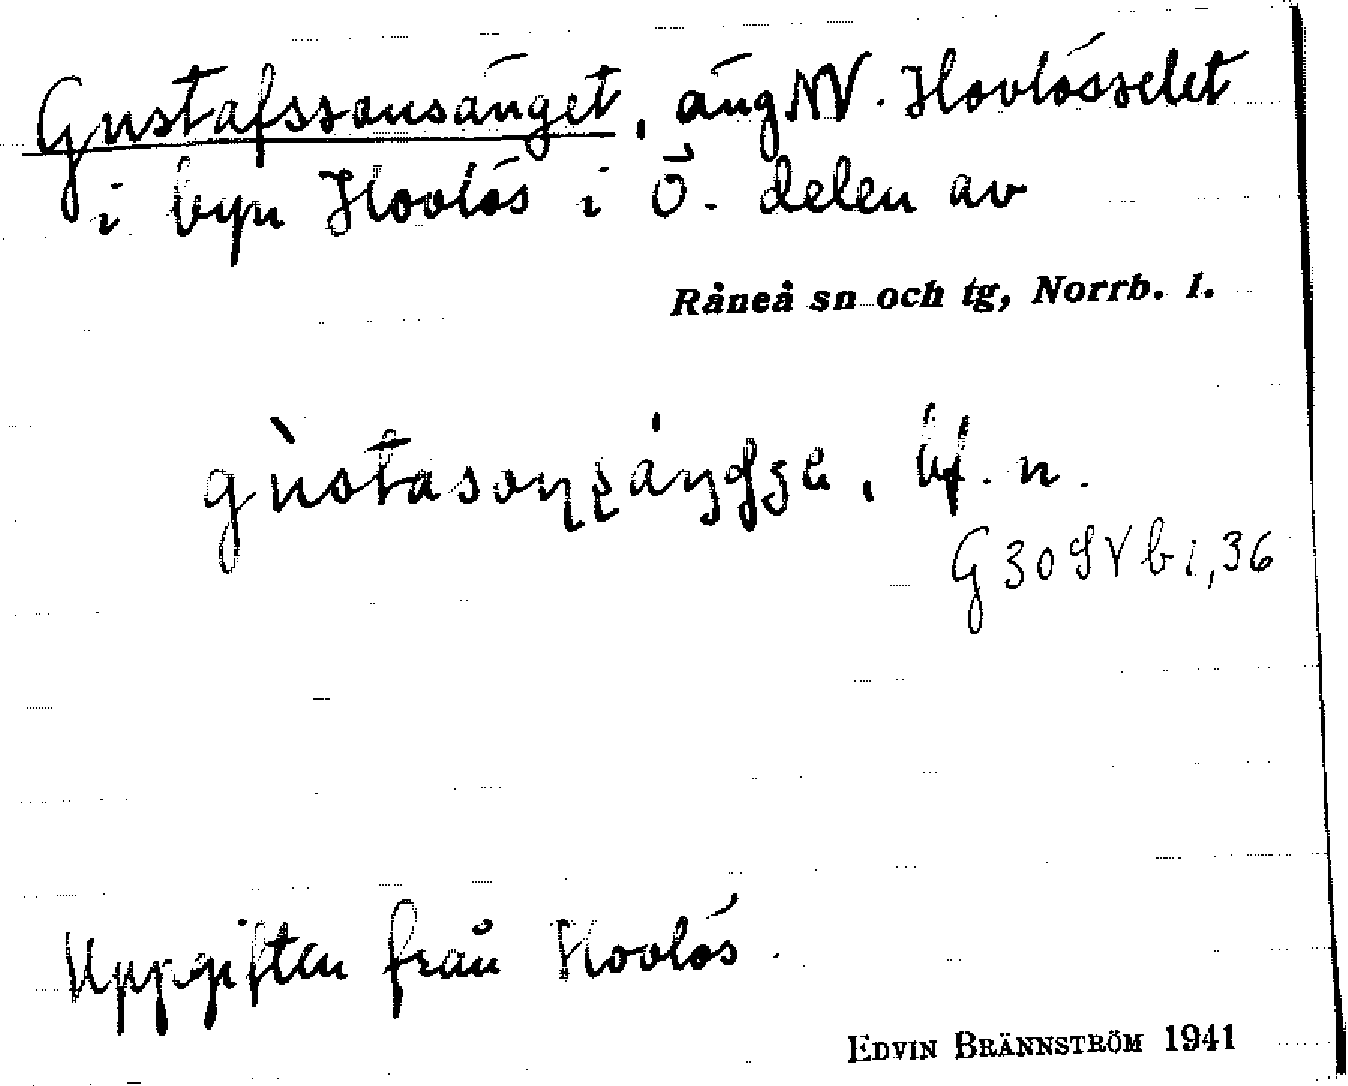 Gustafssonsänget, äng NV. Hovlösselet
i byn Hovlös i Ö. delen av
Råneå sn och tg, Norrb. l.
bf. n.
G 30 SV b 1, 36
Uppgiften från Hovlös.
EDVIN BRÄNNSTRÖM 1941